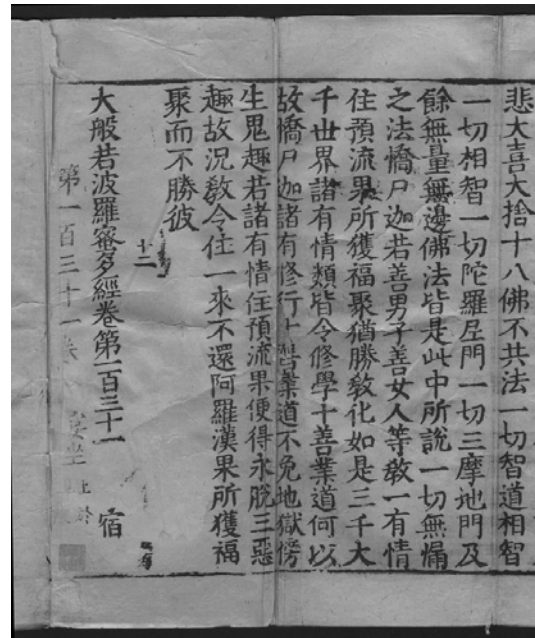 悲大喜大捨十八佛不共法一切智道相智
一切相智一切陀羅尼門一切三摩地門及
餘無量無邊佛法皆是此中所說一切無漏
之法憍尸迦若善男子善女人等教一有情
住預流果所獲福聚猶勝教化如是三千大
千世界諸有情類皆令修學十善業道何以
故憍尸迦諸有修行十善業道不免地獄傍
生鬼趣若諸有情住預流果便得永脫三惡
趣故況教令住一來不還阿羅漢果所獲福
聚而不勝彼
十二
大般若波羅蜜多經卷第一百三十一 宿
第一百三十一卷